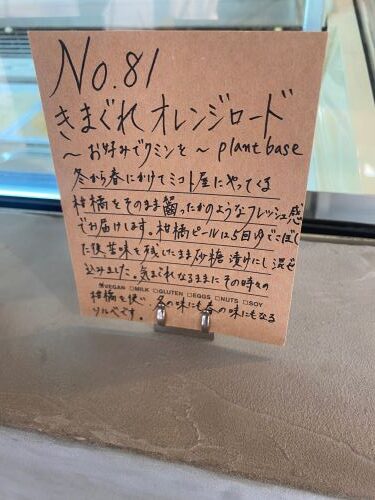 No.81
きまぐれ オレンジロード
〜お好みでクミンを〜 plant base
冬から春にかけてミコト屋にやってくる
柑橘をそのまま齧ったかのようなフレッシュ感
でお届けします。柑橘ピールは5回ゆでこぼし
た後、苦味を残したまま砂糖漬けにし混ぜ
込みました。気まぐれなるままにその時々の
VEGAN □MILK □GLUTEN □EGGS □NUTS □SOY
柑橘を使い、冬の味にも春の味にもなる
ソルベです。